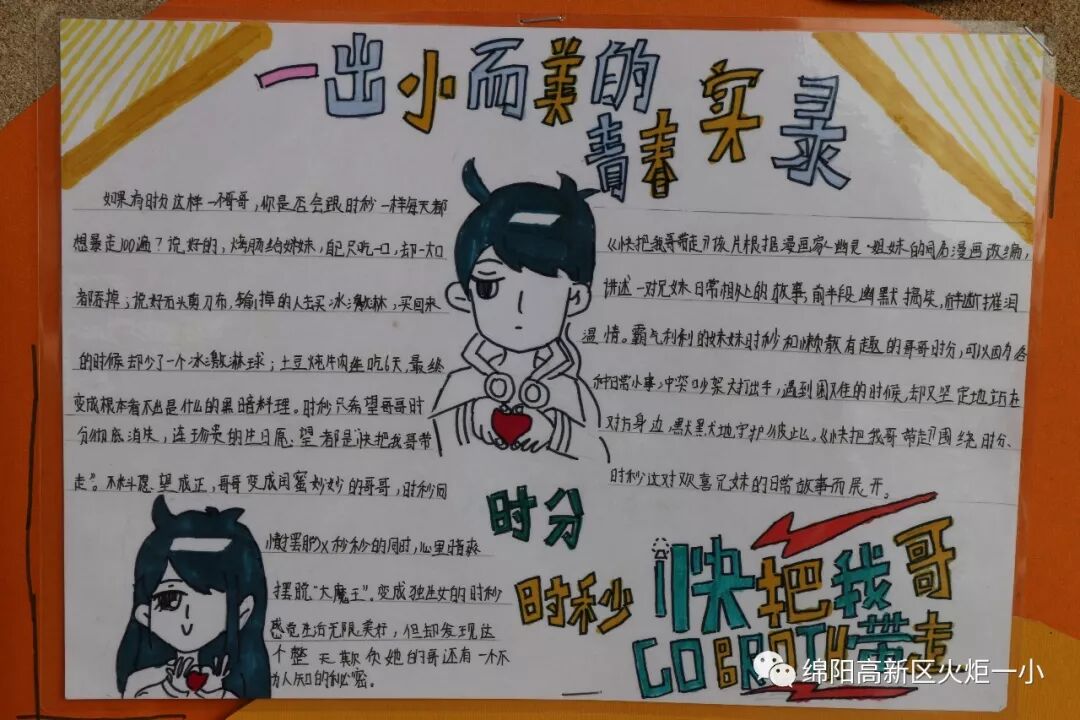 一出小而美的
青春实录
如果有时分这样一个哥哥，你是否会跟时秒一样每天都
想暴走100遍？说好的，烤肠给妹妹，自己只吃一口，却一大口
都吞掉；说好石头剪刀布，输掉的人去买冰激淋，买回来
的时候却少了一个冰激淋球；土豆炖牛肉连吃6天，最终
变成根本看不出是什么的黑暗料理。时秒只希望哥哥时
分彻底消失，连珍贵的生日愿望都是“快把我哥带
走”。不料愿望成正，哥哥变成闺蜜妙妙的哥哥，时秒同
情摆脱 秒秒的同时，心里暗爽
摆脱“大魔王”。变成独生女的时秒
感觉生活无限美好，但却发现这
个整天欺负她的哥还有一个不
为人知的秘密。
《快把我哥带走》该片根据漫画家幽灵 姐妹的同名漫画改编，
讲述一对兄妹日常相处的故事，前半段幽默搞笑，后半断打催泪
温情。霸气利利的妹妹时秒和懒散有趣的哥哥时分，可以因为各
种日常小事，冲突吵架大打出手，遇到困难的时候，却又坚定地站在
对方身边，默默大地守护彼此。《快把我哥带走》围绕时分、
时秒这对欢喜兄妹的日常故事而展开。
时分
时秒
快把我哥
GO BROTH 带走
绵阳高新区火炬一小